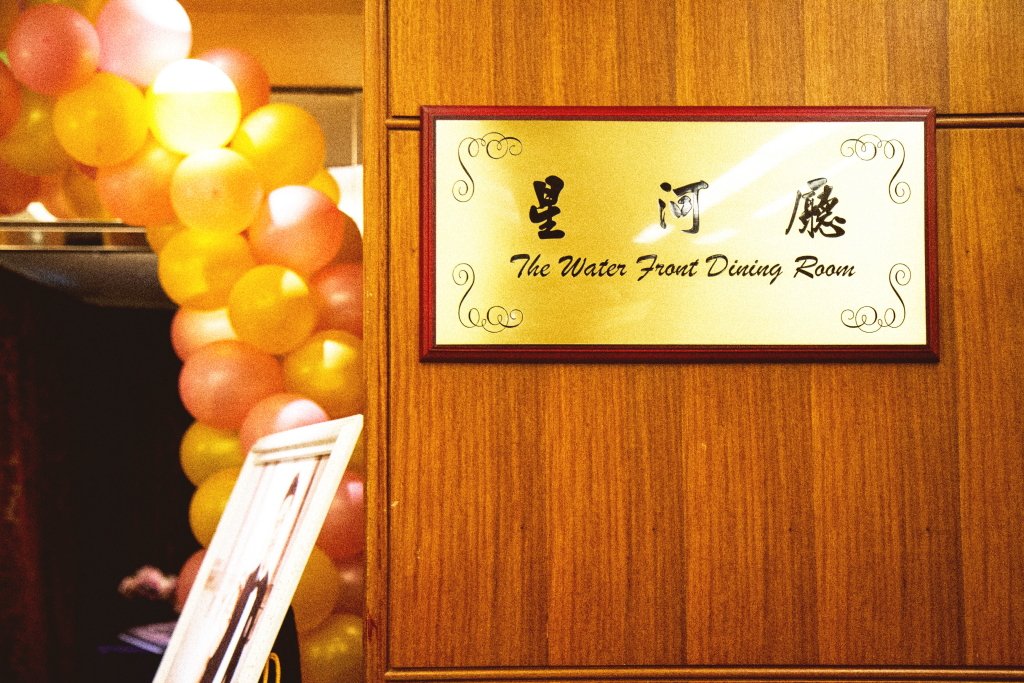 星河廳
The Water Front Dining Room